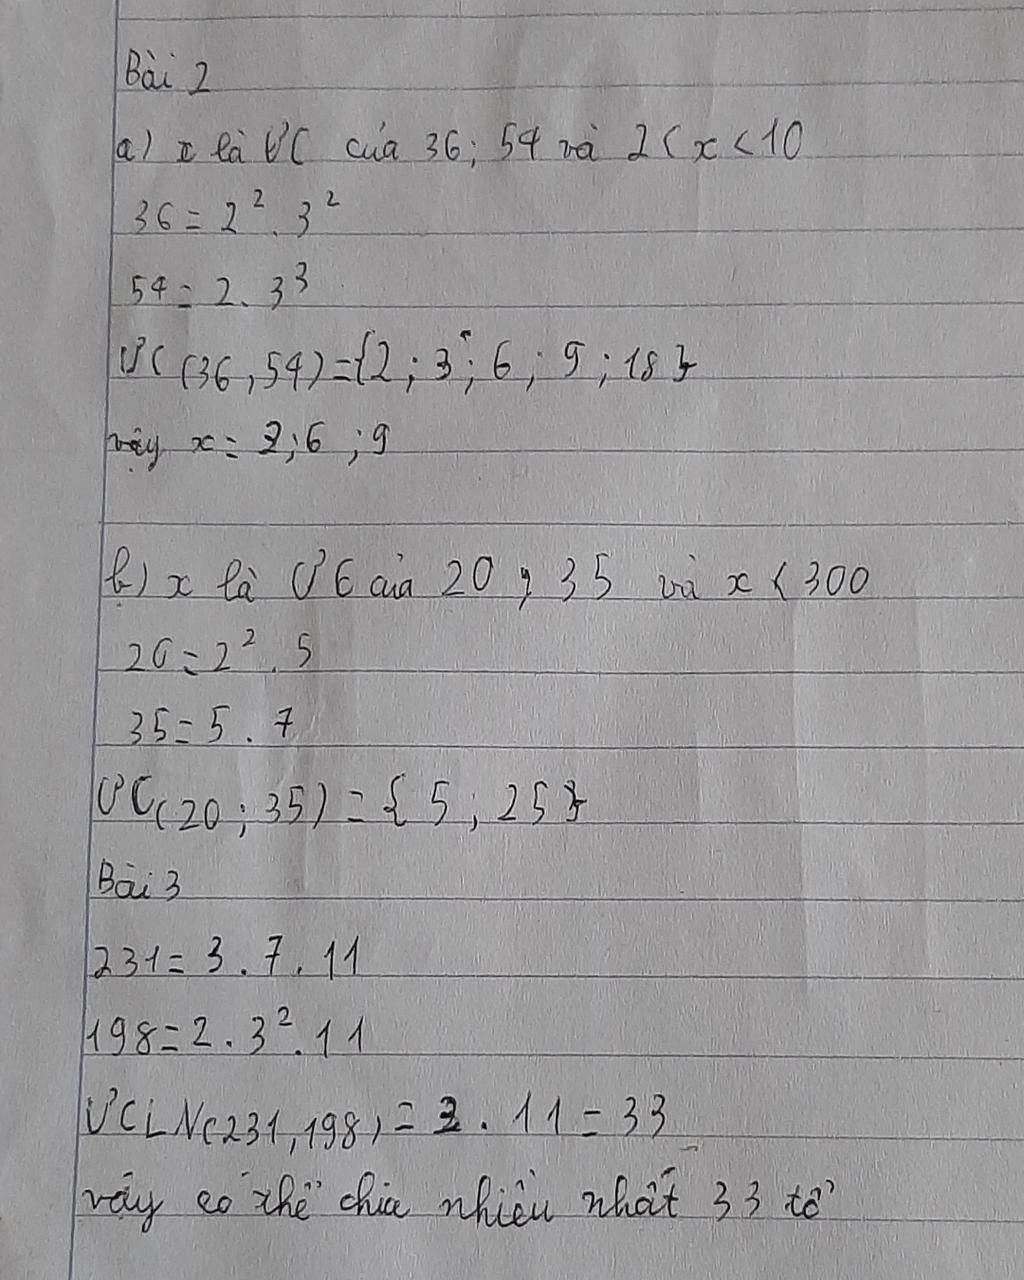 Bài 2
a) x là ƯC của 36; 54 và 2 < x < 10
36 = 2² . 3²
54 = 2 . 3³
ƯC (36, 54) = {2; 3; 6; 9; 18}
vậy x = 3; 6; 9
b) x là ƯC của 20; 35 và x < 300
20 = 2² . 5
35 = 5 . 7
ƯC (20; 35) = {5; 25}
Bài 3
231 = 3 . 7 . 11
198 = 2 . 3² . 11
ƯCLN (231, 198) = 3 . 11 = 33
vậy có thể chia nhiều nhất 33 tổ